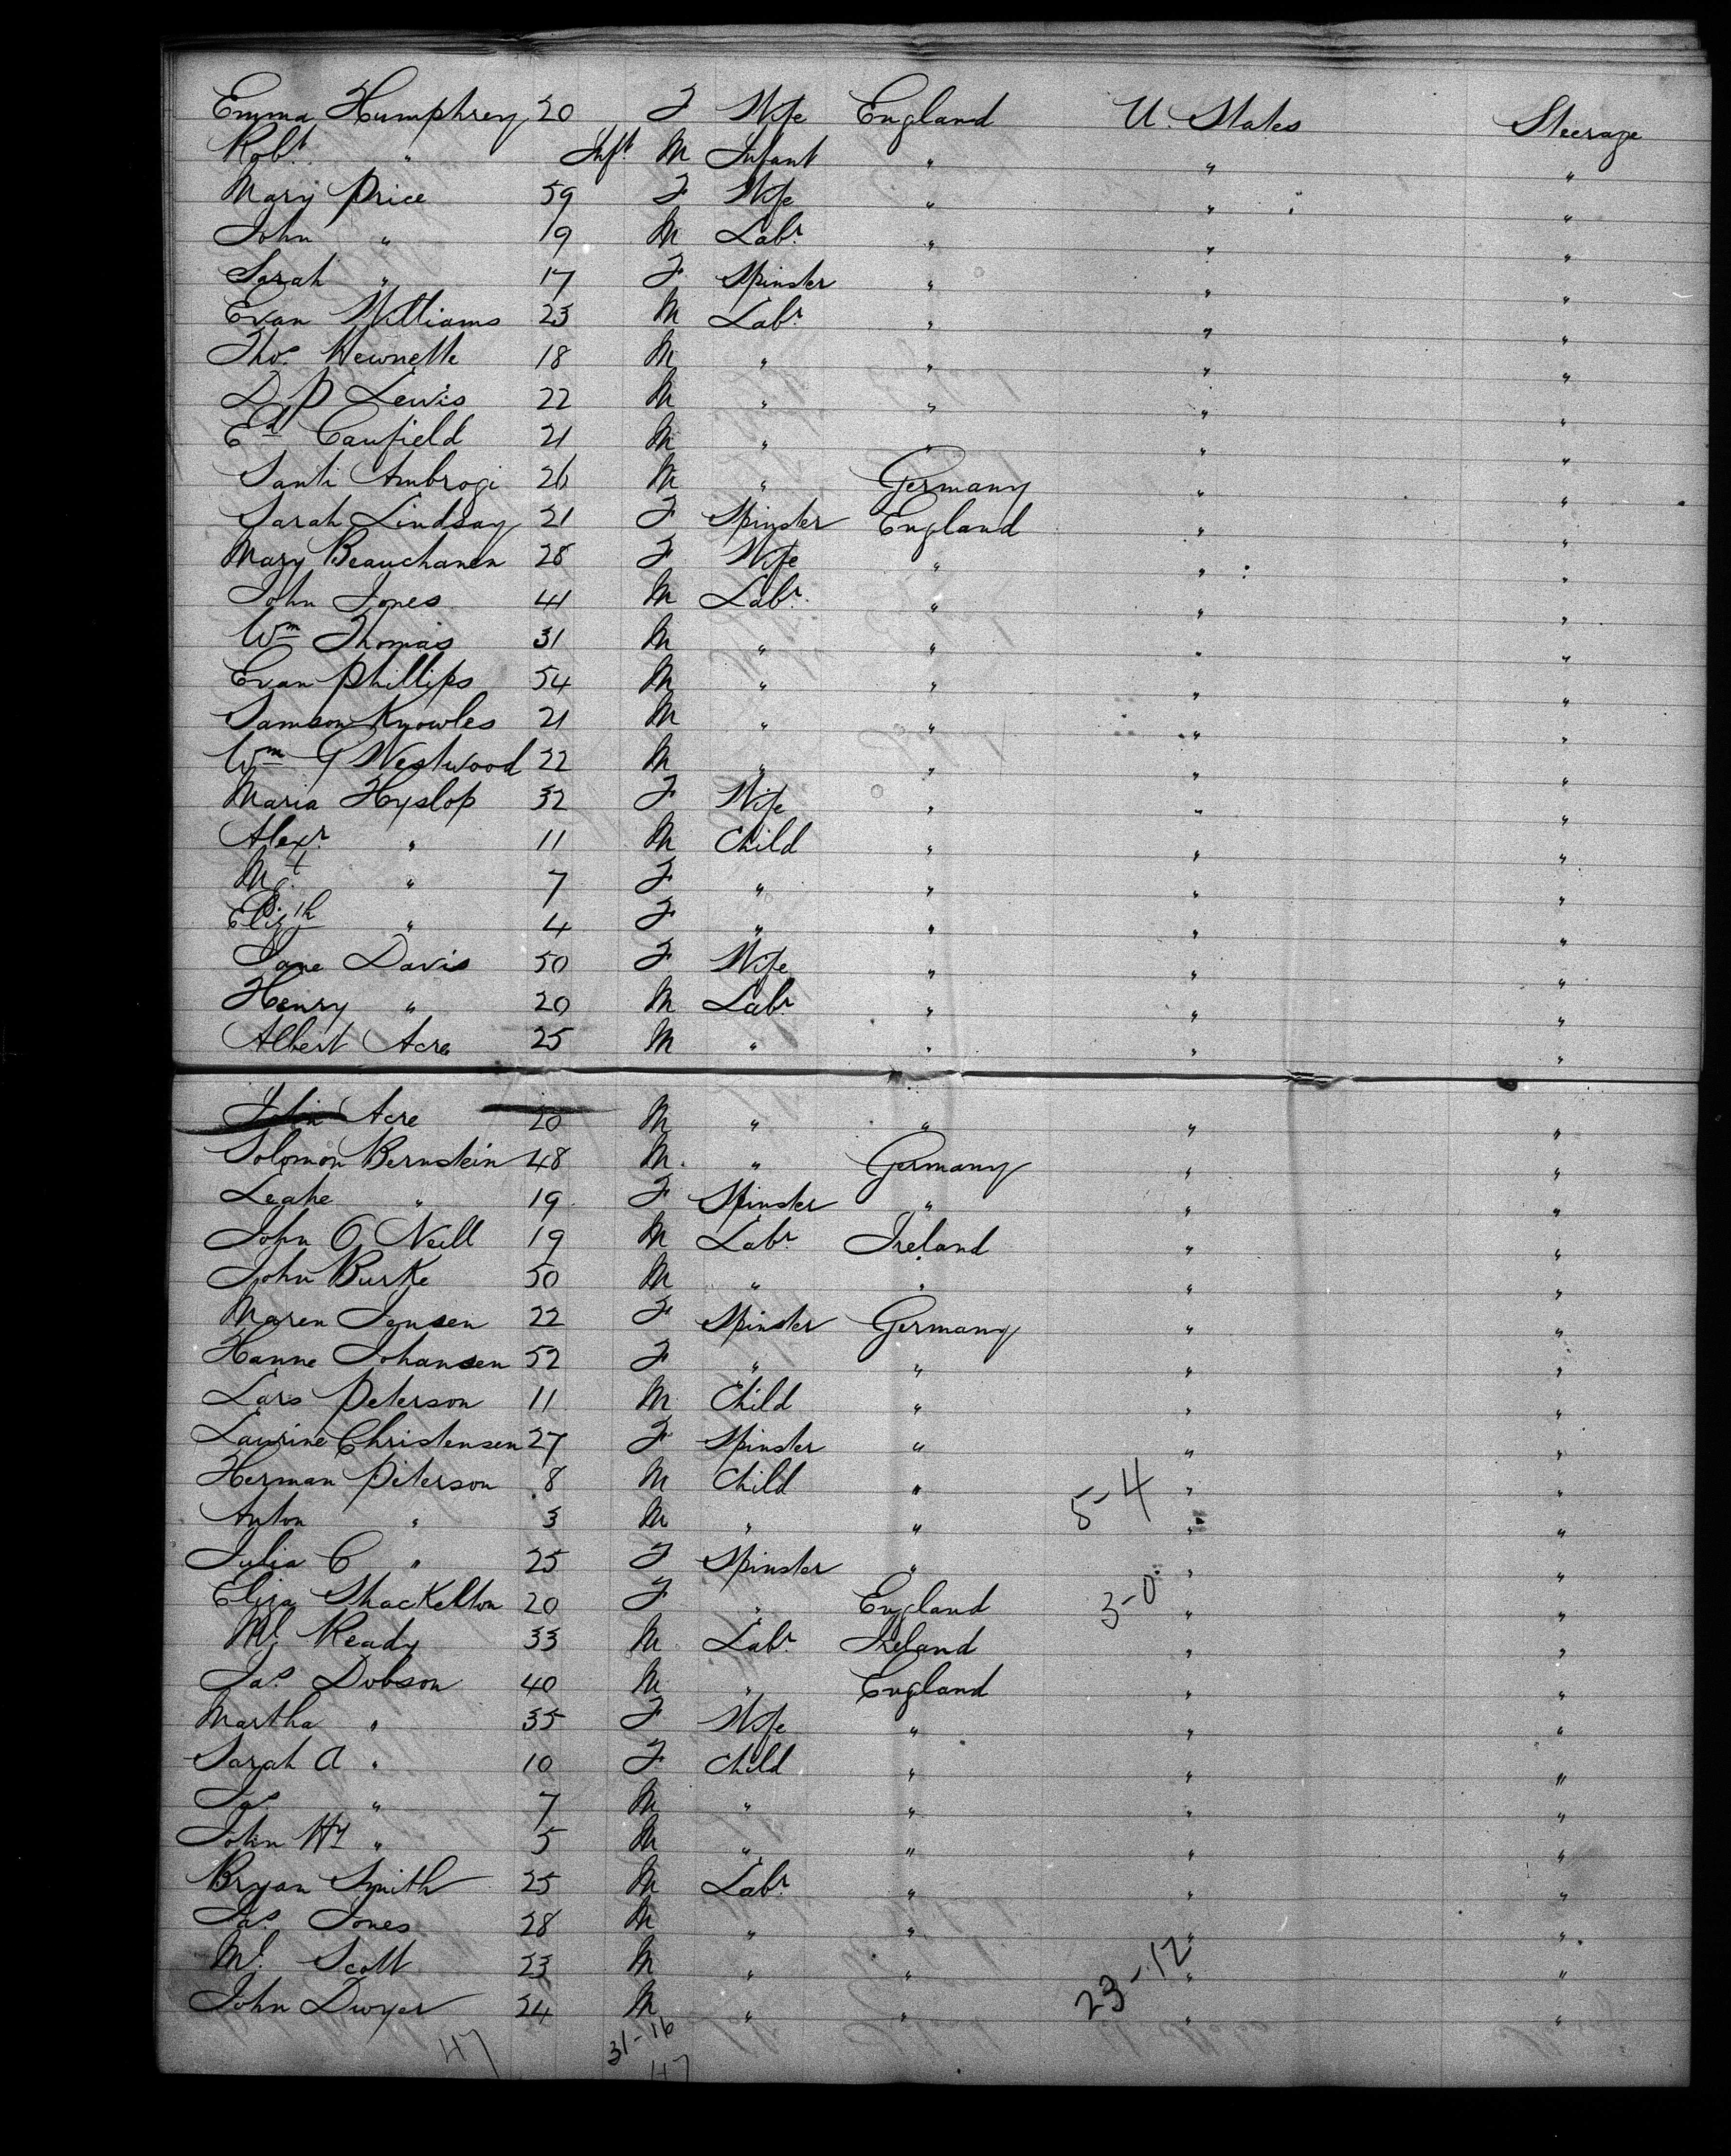 Emma Humphrey 20 F Wife England U. States Steerage
Robt. " Inft. M Infant " " "
Mary Price 59 F Wife " " "
John " 19 M Labr. " " "
Sarah " 17 F Spinster " " "
Evan Williams 23 M Labr. " " "
Thos. Hewnette 18 M " " " "
D P Lewis 22 M " " " "
Ed Caufield 21 M " " " "
Santi Ambrogi 26 M " Germany " "
Sarah Lindsay 21 F Spinster England " "
Mary Beauchanen 28 F Wife " " "
John Jones 41 M Labr. " " "
Wm Thomas 31 M " " " "
Evan Phillips 54 M " " " "
Samson Knowles 21 M " " " "
Wm G Westwood 22 M " " " "
Maria Hyslop 32 F Wife " " "
Alexr. " 11 M Child " " "
Mgt. " 7 F " " " "
Elizth " 4 F " " " "
Jane Davis 50 F Wife " " "
Henry " 20 M Labr. " " "
Albert Acre 25 M " " " "
John Acre 20 M " " " "
Solomon Bernstein 48 M. " Germany " "
Leahe " 19 F Spinster " " "
John O Neill 19 M Labr. Ireland " "
John Burke 50 M " " " "
Maren Jensen 22 F Spinster Germany " "
Hanne Johansen 52 F " " " "
Lars Peterson 11 M Child " " "
Laurine Christensen 27 F Spinster " " "
Herman Peterson 8 M Child " " "
Anton " 3 M " " 5-4 " "
Julia C " 25 F Spinster " " "
Eliza Shackelton 20 F " England 3-0 " "
Ml. Ready 33 M Labr. Ireland " "
Jas. Dobson 40 M " England " "
Martha " 35 F Wife " " "
Sarah A " 10 F Child " " "
Jas " 7 M " " " "
John Hy " 5 M " " " "
Bryan Smith 25 M Labr. " " "
Jas. Jones 28 M " " " "
Ml. Scott 23 M " " " "
John Dwyer 24 M " " 23-12 " "
47 31-16
47